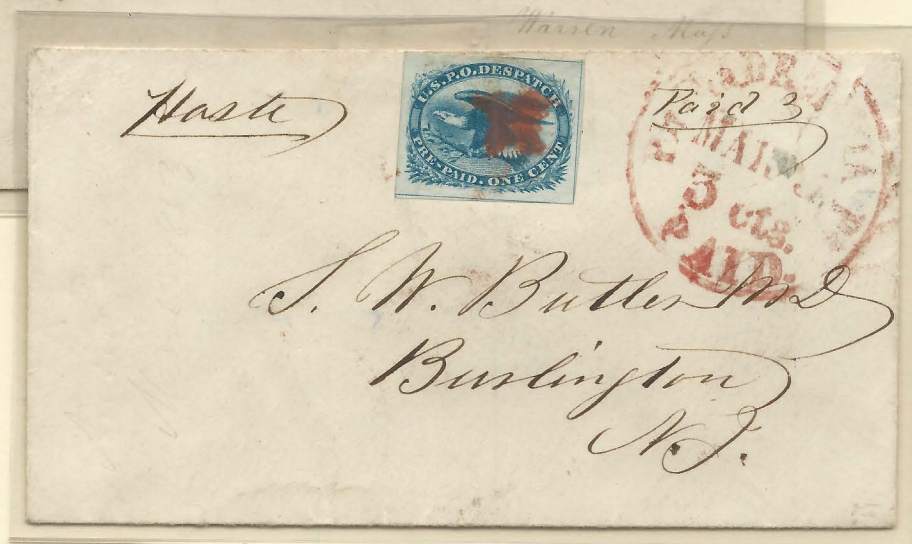 Warren Mass
Haste
U.S.P.O. DESPATCH
PRE-PAID. ONE CENT
Paid 3
3 cts.
PAID.
S. W. Butler MD
Burlington
N.J.